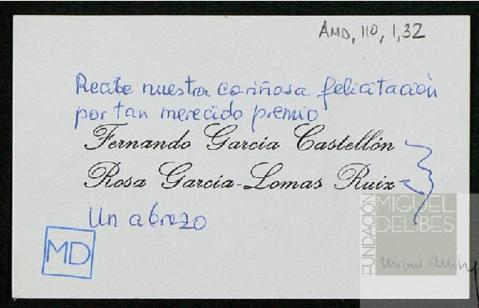 AMD, 110, 1,32
Recibe nuestra cariñosa felicitación
por tan merecido premio
Fernando García Castellón
Rosa García-Lomas Ruiz
Un abrazo
MD
FUNDACIÓN
MIGUEL
DELIBES